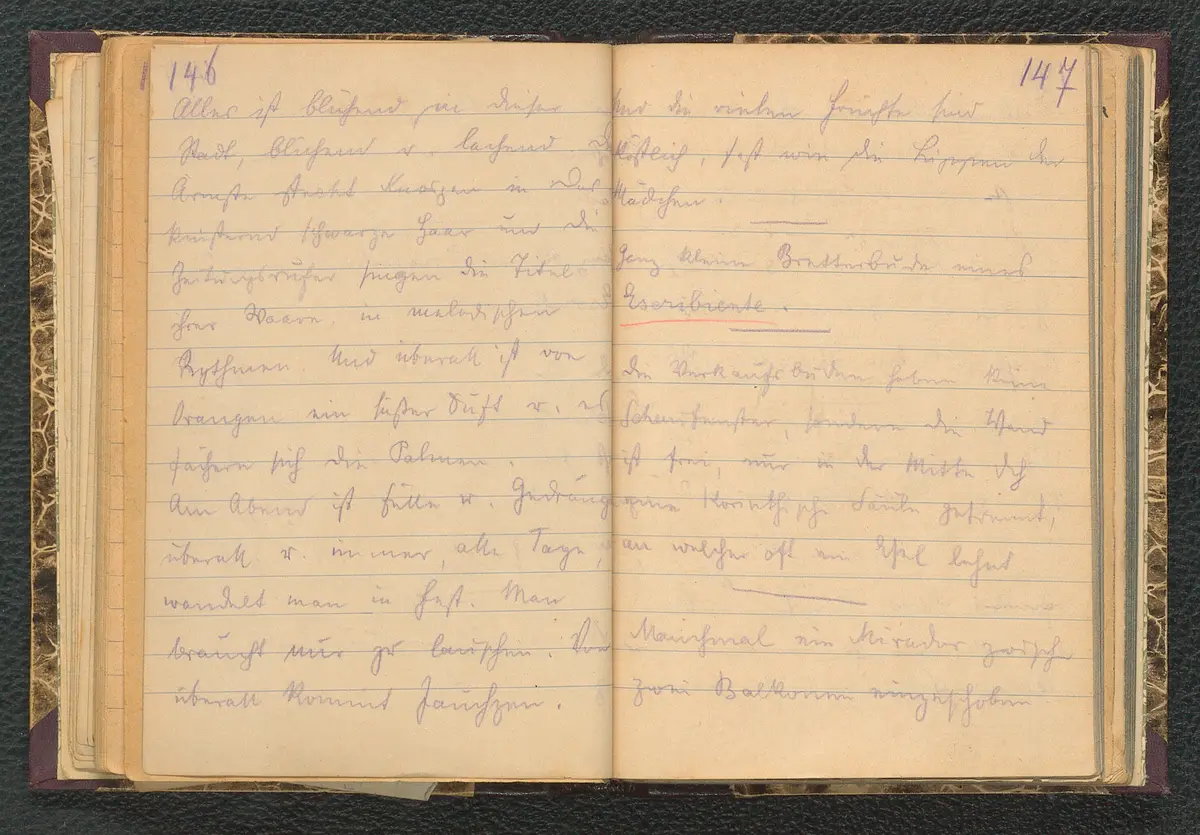 146
Alles ist blühend in dieser
Stadt, blühend u. lachend. Die
Ärmste steckt Knospen in das
knisternd schwarze Haar und die
Zeitungsrufer singen die Titel
ihrer Waare in melodischen
Rythmen. Und überall ist von
Orangen ein süßer Duft u. es
fächern sich die Palmen.
Am Abend ist Fülle u. Gedränge
überall u. immer, alle Tage,
wandelt man in Fest. Man
braucht nur zu lauschen: Von
überall kommt Jauchzen.
147
Und die vielen Früchte sind
köstlich, fest wie die Lippen der
Mädchen.
Ganz kleine Bretterbude eines
Escribiente.
Die Verkaufsbuden haben kein
Schaufenster, sondern die Wand
ist frei, nur in der Mitte dch
eine Korinthische Säule getrennt,
an welcher oft ein Esel lehnt
Manchmal ein Mirador zwisch
zwei Balkonen eingeschoben